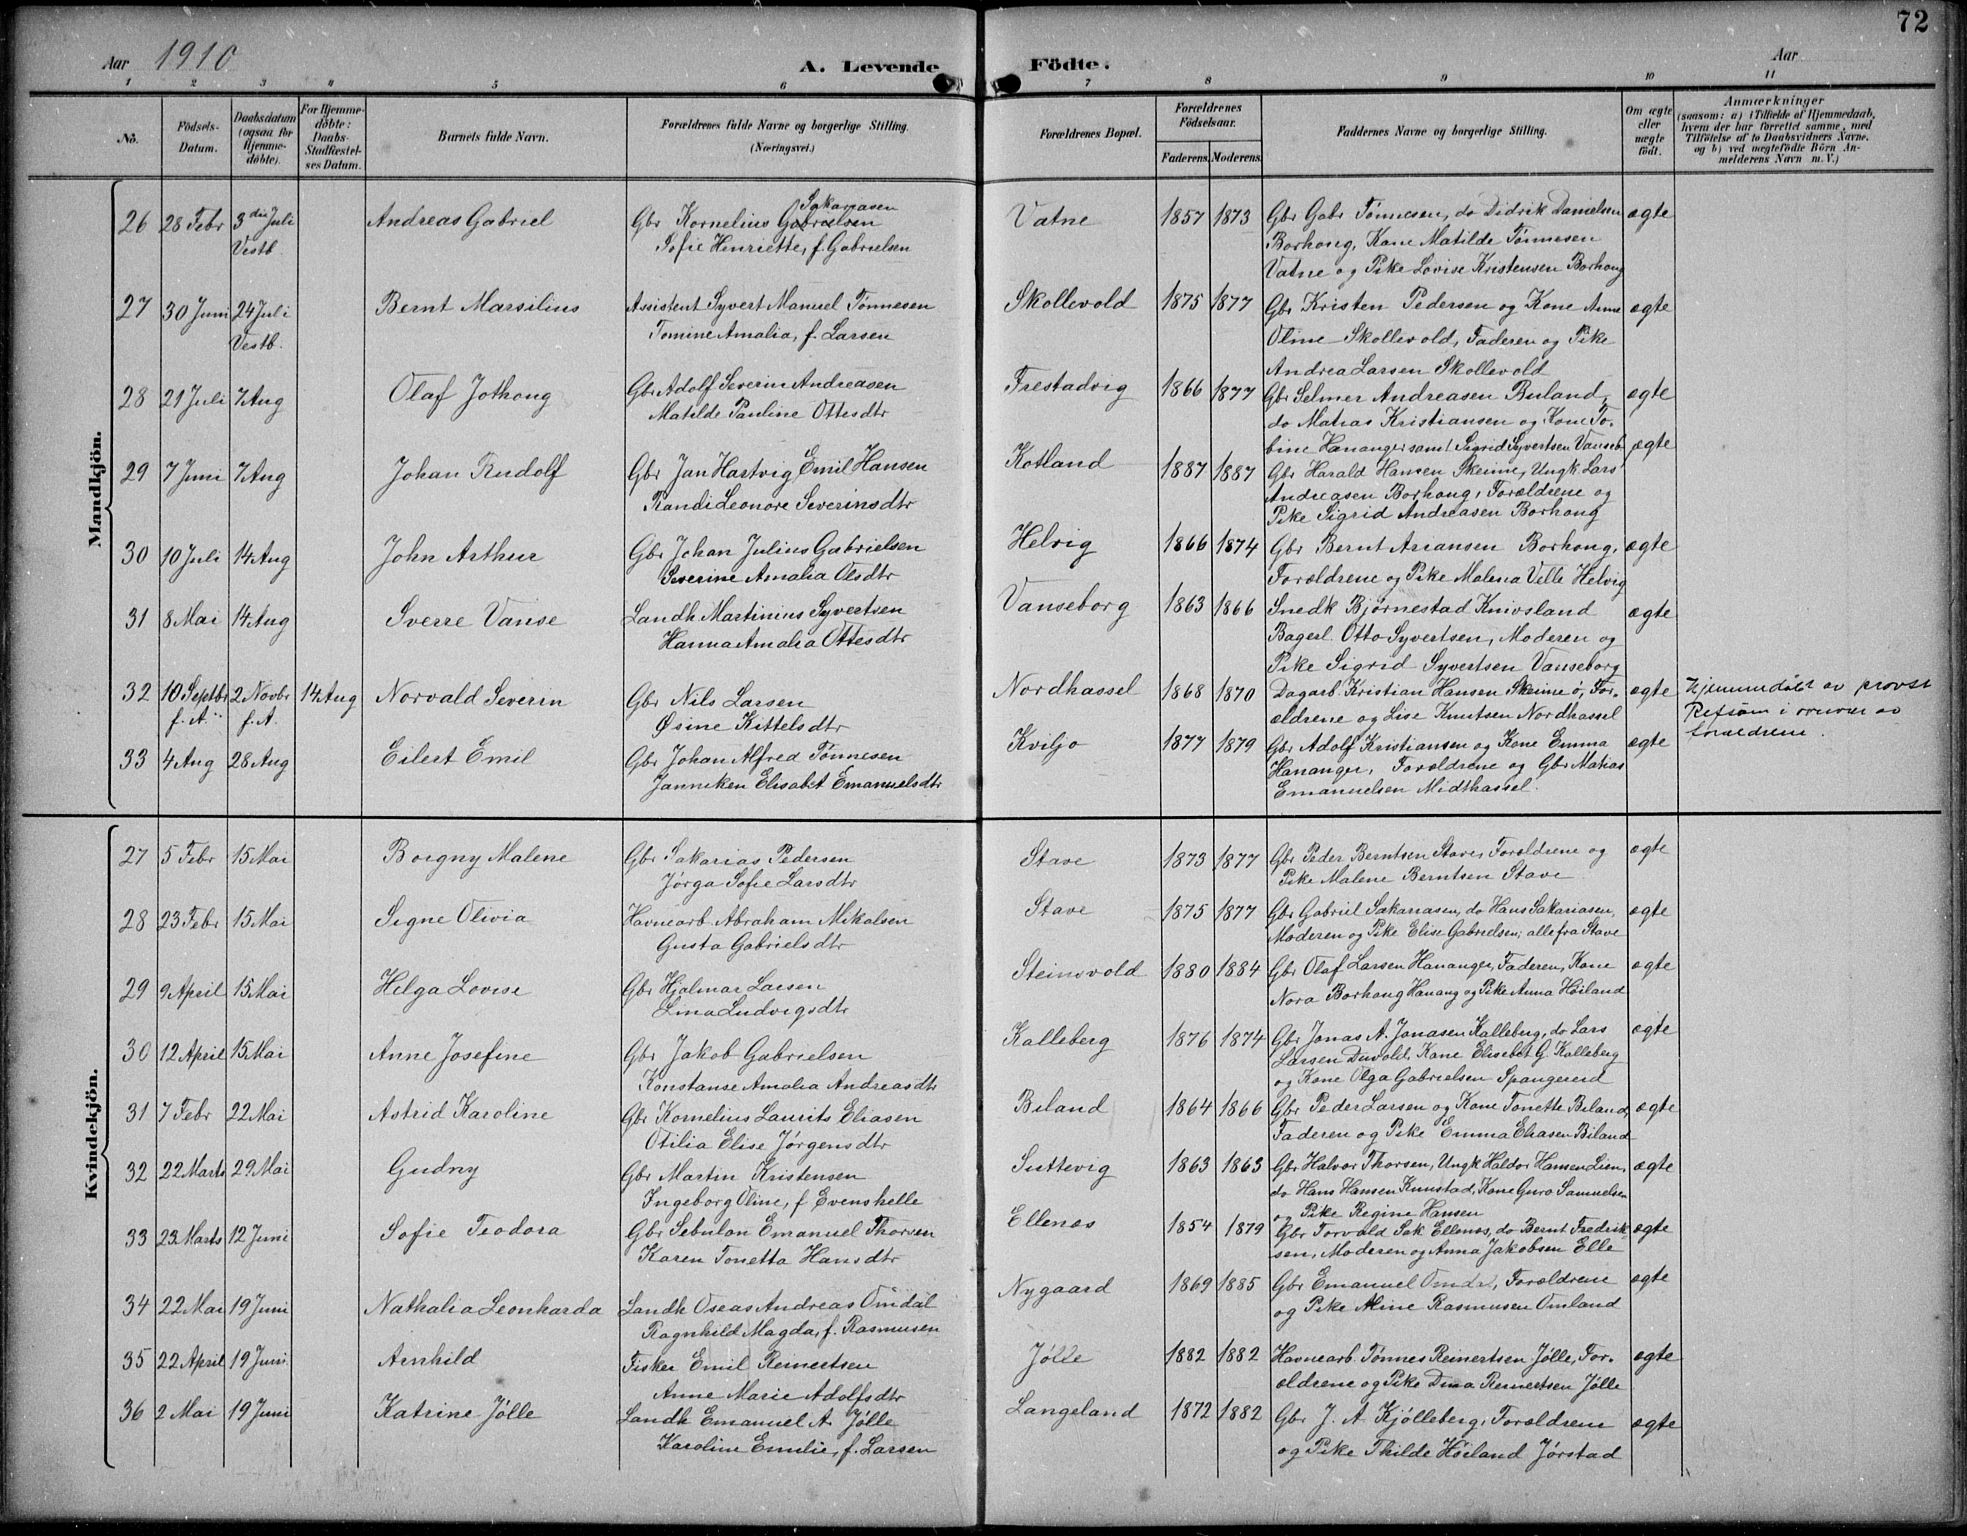 72
Aar 1910
A. Levende Födte.
Aar
1 2 3 4 5 6 7 8 9 10 11
No.
Födsels-Datum.
Daabsdatum (ogsaa for Hjemme-döbte).
For Hjemme-döbte: Daabs-Stadfæstel-ses Datum.
Barnets fulde Navn.
Forældrenes fulde Navne og borgerlige Stilling.
(Næringsvei.)
Forældrenes Bopæl.
Forældrenes Födselsaar.
Faderens. Moderens.
Faddernes Navne og borgerlige Stilling.
Om ægte eller uægte födt.
Anmærkninger
(saasom: a) i Tilfælde af Hjemmedaab, hvem der har forrettet samme, med Tilföielse af to Daabsvidners Navne. og b) ved uægtefödte Börn An-melderens Navn m. V.)
Mandkjön.
26 28 Febr 3die Juli Vestb. Andreas Gabriel
Gbr Kornelius Gabrielsen Sakariasen
Sofie Henriette, f. Gabrielsen
Vatne 1857 1873
Gbr Gabr Tønnesen, do Didrik Danielsen
Borhaug, Kone Matilde Tønnesen
Vatne og Pike Lovise Kristensen Borhaug
ægte
27 30 Juni 24 Juli Vestb. Bernt Marsilius
Assistent Syvert Manuel Tønnesen
Tomine Amalia, f. Larsen
Skollevold 1875 1877
Gbr Kristen Pedersen og Kone Anne
Oline Skollevold, Faderen og Pike
Andrea Larsen Skollevold
ægte
28 21 Juli 7 Aug Olaf Jothong
Gbr Adolf Severin Andreasen
Matilde Pauline Ottesdtr
Frestadvig 1866 1877
Gbr Selmer Andreasen Buland,
do Matias Kristiansen og Kone To-
bine Hananger samt Sigrid Syvertsen Vanseb
ægte
29 7 Juni 7 Aug Johan Rudolf
Gbr Jan Hartvig Emil Hansen
Randi Leonore Severinsdtr
Kotland 1887 1887
Gbr Harald Hansen Skeime, Ungk. Lars
Andreasen Borhaug, Forældrene og
Pike Sigrid Andreasen Borhaug
ægte
30 10 Juli 14 Aug John Arthur
Gbr Johan Julius Gabrielsen
Severine Amalia Olsdtr
Helvig 1866 1874
Gbr Bernt Ariansen Borhaug,
Forældrene og Pike Malena Velle Helvig
ægte
31 8 Mai 14 Aug Sverre Vanse
Landh Martinius Syvertsen
Hanna Amalia Ottesdtr
Vanseborg 1863 1866
Snedk Bjørnestad Knivsland
Bagerl. Otto Syvertsen, Moderen og
Pike Sigrid Syvertsen Vanseborg
ægte
32 10 Septbr f. A. 2 Novbr f. A. 14 Aug Norvald Severin
Gbr Nils Larsen
Øsine Kittelsdtr
Nordhassel 1868 1870
Dagarb. Kristian Hansen Skeime ø, For-
ældrene og Lise Knutsen Nordhassel
ægte
Hjemmedøbt av provst
Refsum i nærvær av
forældrene.
33 4 Aug 28 Aug Eilert Emil
Gbr Johan Alfred Tønnesen
Janniken Elisabet Emanuelsdtr
Kviljo 1877 1879
Gbr Adolf Kristiansen og Kone Emma
Hananger, Forældrene og Gbr Matias
Emanuelsen Midthassel.
ægte
Kvindekjön.
27 5 Febr 15 Mai Borgny Malene
Gbr Sakarias Pedersen
Jørga Sofie Larsdtr
Stave 1873 1877
Gbr Peder Berntsen Stave, Forældrene og
Pike Malene Berntsen Stave
ægte
28 23 Febr 15 Mai Signe Olivia
Havnearb. Abraham Mikalsen
Gusta Gabrielsdtr
Stave 1875 1877
Gbr Gabriel Sakariasen, do Hans Sakariasen,
Moderen og Pike Elise Gabrielsen; alle fra Stave
ægte
29 9 April 15 Mai Helga Lovise
Gbr Hjalmar Larsen
Lina Ludvigsdtr
Steinsvold 1880 1884
Gbr Olaf Larsen Hananger, Faderen, Kone
Nora Borhaug Hanang og Pike Anna Høiland
ægte
30 12 April 15 Mai Anne Josefine
Gbr Jakob Gabrielsen
Konstanse Amalia Andreasdtr
Kalleberg 1876 1874
Gbr Jonas A. Jonasen Kalleberg, do Lars
Larsen Duvold, Kone Elisebet G. Kalleberg
og Kone Olga Gabrielsen Spangereid
ægte
31 7 Febr 22 Mai Astrid Karoline
Gbr Kornelius Laurits Eliasen
Otilia Elise Jørgensdtr
Biland 1864 1866
Gbr Peder Larsen og Kone Tonette Biland,
Faderen og Pike Emma Eliasen Biland
ægte
32 22 Marts 29 Mai Gudny
Gbr Martin Kristensen
Ingeborg Oline, f Evenshelle
Suttevig 1863 1863
Gbr Halvor Thorsen, Ungk Haldor Hansen Lien,
do Hans Hansen Kunstad, Kone Guro Samuelsen
og Pike Regine Hansen
ægte
33 23 Marts 12 Juni Sofie Teodora
Gbr Sebulon Emanuel Thorsen
Karen Tonetta Hansdtr
Ellenes 1854 1879
Gbr Torvald Sak Ellenes, do Bernt Fredrik-
sen, Moderen og Anna Jakobsen Elle
ægte
34 22 Mai 19 Juni Nathalia Leonharda
Landh Oseas Andreas Omdal
Ragnhild Magda, f. Rasmusen
Nygaard 1869 1885
Gbr Emanuel Omdal, Forældrene
og Pike Aline Rasmusen Omland
ægte
35 22 April 19 Juni Arnhild
Fisker Emil Reinertsen
Anne Marie Adolfsdtr
Jølle 1882 1882
Havnearb. Tønnes Reinertsen Jølle, For-
ældrene og Pike Dina Reinertsen Jølle
ægte
36 2 Mai 19 Juni Katrine Jølle
Landh Emanuel A. Jølle
Karoline Emilie, f. Larsen
Langeland 1872 1882
Gbr J. A. Kjølleberg, Forældrene
og Pike Thilde Høiland Jørstad
ægte